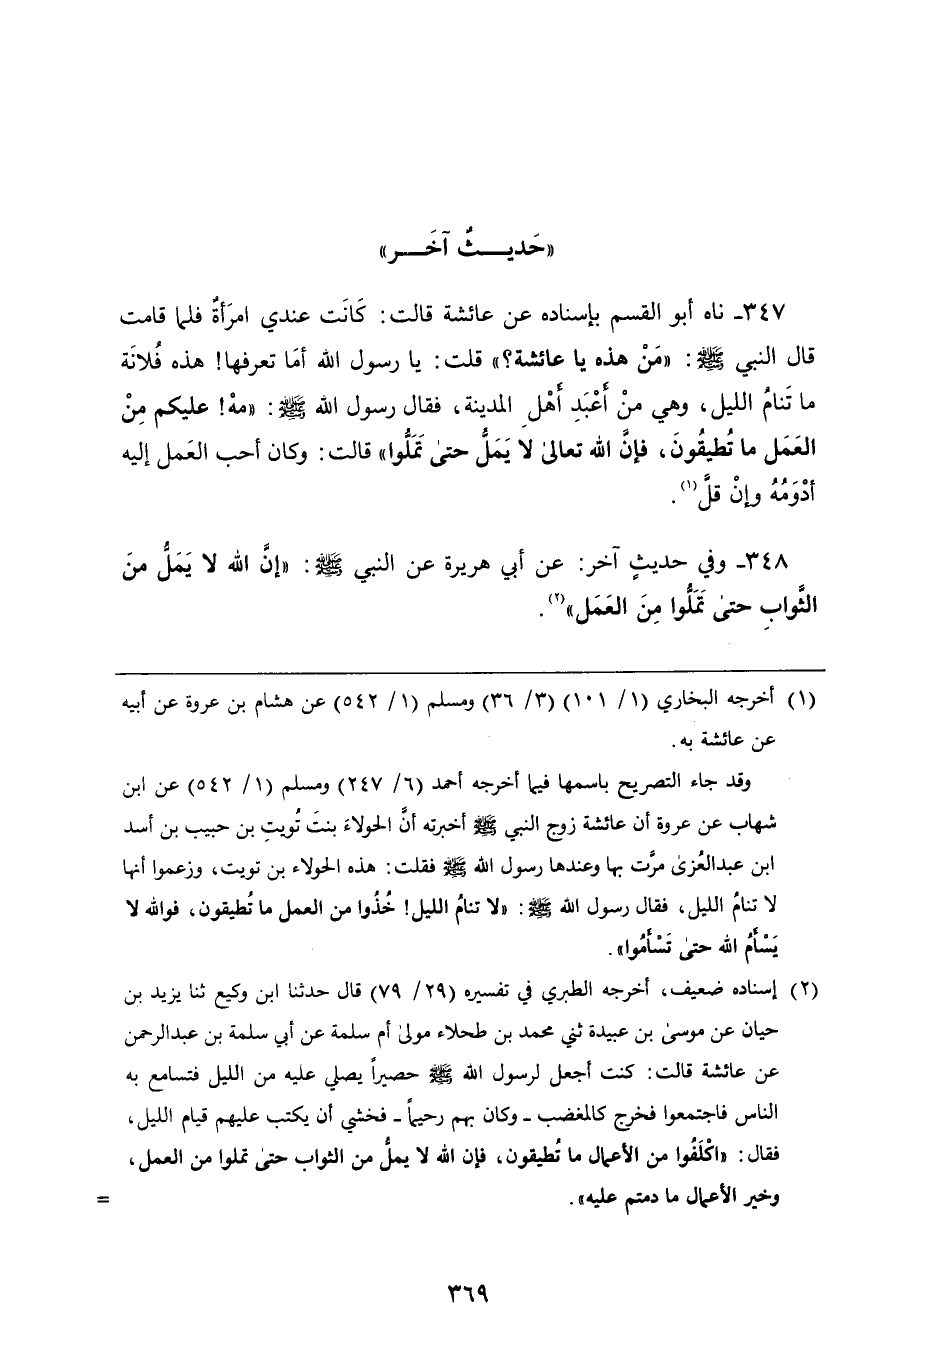 «حَديــثٌ آخَــر»
٣٤٧ـ ناه أبو القسم بإسناده عن عائشة قالت: كَانَت عندي امرَأةٌ فلما قامت
قال النبي ﷺ: «مَنْ هذه يا عائشة؟» قلت: يا رسول الله أمَا تعرفها! هذه فُلانَة
ما تَنامُ الليل، وهي منْ أَعْبَدِ أَهْلِ المدينة، فقال رسول الله ﷺ: «مهْ! عليكم مِنْ
العَمَل ما تُطيقُونَ، فإنَّ الله تعالىٰ لا يَمَلُّ حتىٰ تَمَلُّوا» قالت: وكان أحب العَمل إليه
أدْوَمُهُ وإنْ قلَّ(١).
٣٤٨ـ وفي حديثٍ آخر: عن أبي هريرة عن النبي ﷺ: «إنَّ الله لا يَمَلُّ منَ
الثَّوابِ حتىٰ تَمَلُّوا مِنَ العَمَل»(٢).
(١) أخرجه البخاري (١/ ١٠١) (٣/ ٣٦) ومسلم (١/ ٥٤٢) عن هشام بن عروة عن أبيه
عن عائشة به.
وقد جاء التصريح باسمها فيما أخرجه أحمد (٦/ ٢٤٧) ومسلم (١/ ٥٤٢) عن ابن
شهاب عن عروة أن عائشة زوج النبي ﷺ أخبرته أنَّ الحولاءَ بنتَ تُويتِ بن حبيب بن أسد
ابن عبدالعُزىٰ مرَّت بها وعندها رسول الله ﷺ فقلت: هذه الحولاء بن تويت، وزعموا أنها
لا تنامُ الليل، فقال رسول الله ﷺ: «لا تنامُ الليل! خُذُوا من العمل ما تُطيقون، فوالله لا
يَسْأَمُ الله حتىٰ تَسْأَمُوا».
(٢) إسناده ضعيف، أخرجه الطبري في تفسيره (٢٩/ ٧٩) قال حدثنا ابن وكيع ثنا يزيد بن
حيان عن موسىٰ بن عبيدة ثني محمد بن طحلاء مولىٰ أم سلمة عن أبي سلمة بن عبدالرحمن
عن عائشة قالت: كنت أجعل لرسول الله ﷺ حصيراً يصلي عليه من الليل فتسامع به
الناس فاجتمعوا فخرج كالمغضب ـ وكان بهم رحيماً ـ فخشي أن يكتب عليهم قيام الليل،
فقال: «اكْلَفُوا من الأعمال ما تُطيقون، فإن الله لا يملُّ من الثواب حتىٰ تملوا من العمل،
وخير الأعمال ما دمتم عليه». =
٣٦٩